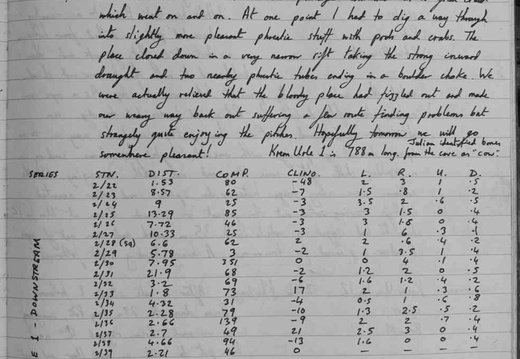 which went on and on. At one point I had to dig a way through
into slightly more pleasant phreatic stuff with proto and crabs. The
place closed down in a very narrow rift taking the strong inward
draught and two nearby phreatic tubes ending in a boulder choke. We
were actually relieved that the bloody place had fizzled out and made
our weary way back out suffering a few route finding problems but
strangely quite enjoying the pitches. Hopefully tomorrow we will go
somewhere pleasant! Julian identified bones
Krem Urle 1 is 788m long. from the cave as 'cow'.
SERIES STN. DIST. COMP. CLINO. L. R. U. D.
2/22 1.53 80 -48 2 3 1 .5
2/23 8.57 62 -7 1.5 .8 1 .2
2/24 9 25 -3 3.5 2 .6 .5
2/25 13.29 85 -3 3 1.5 0 .4
2/26 7.72 46 -3 3 1.5 0 .4
2/27 10.33 25 -3 1 6 .3
2/28 (sq) 6.6 62 2 2 .6 .4 .2
2/29 5.78 3 -2 1 3.5 1 .4
2/30 7.95 351 0 0 .1 .4
2/31 21.9 68 -2 1.2 2 0 .5
2/32 3.2 69 -6 1.6 1.2 .4 .2
2/33 1.8 73 17 2 1 .3 .6
2/34 4.32 31 -4 0.5 1 .6 .8
2/35 2.28 79 -10 1.3 2.5 .5 .2
2/36 2.66 139 -9 2 2 .7 .4
2/37 2.7 49 21 2.5 3 0 .4
2/38 4.66 94 -13 1.6 0 0 .4
2/39 2.21 46 0 - - - -
E 1 - DOWNSTREAM